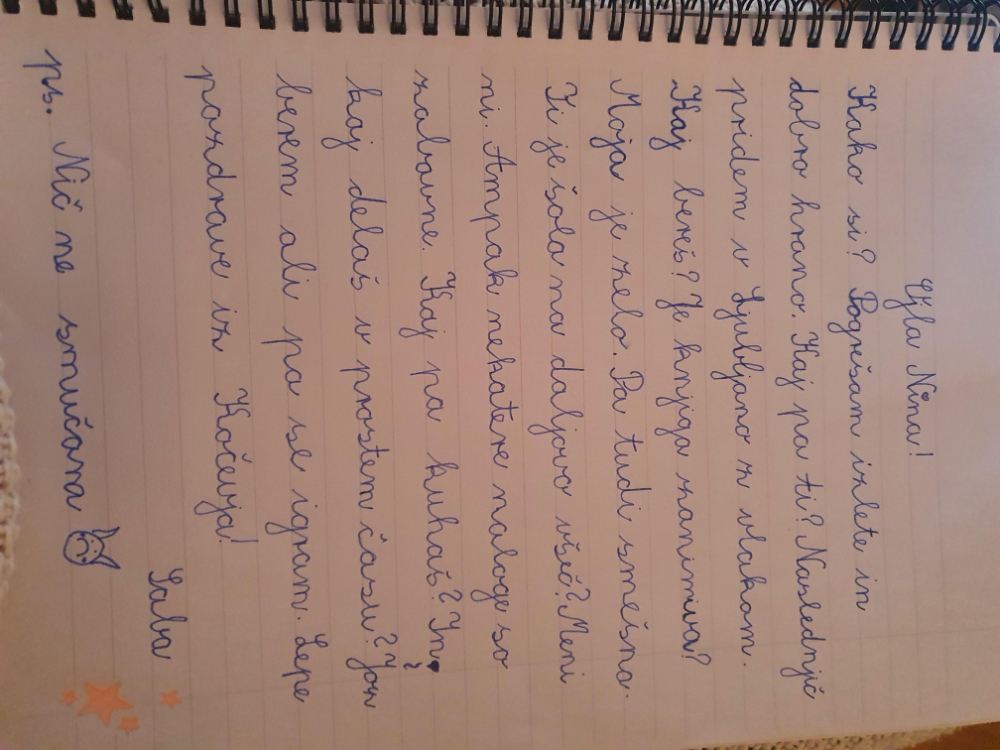 Ojla Nina!
Kako si? Pogrešam izlete in
dobro hrano. Kaj pa ti? Naslednjič
pridem v Ljubljano z vlakom.
Kaj bereš? Je knjiga zanimiva?
Moja je zelo. Pa tudi smešna.
Ti je šola na daljavo všeč? Meni
ni. Ampak nekatere naloge so
zabavne. Kaj pa kuhaš? In
kaj delaš v prostem času? Jaz
berem ali pa se igram. Lepe
pozdrave iz Kočevja!
Saba
ps. Nič ne smučam